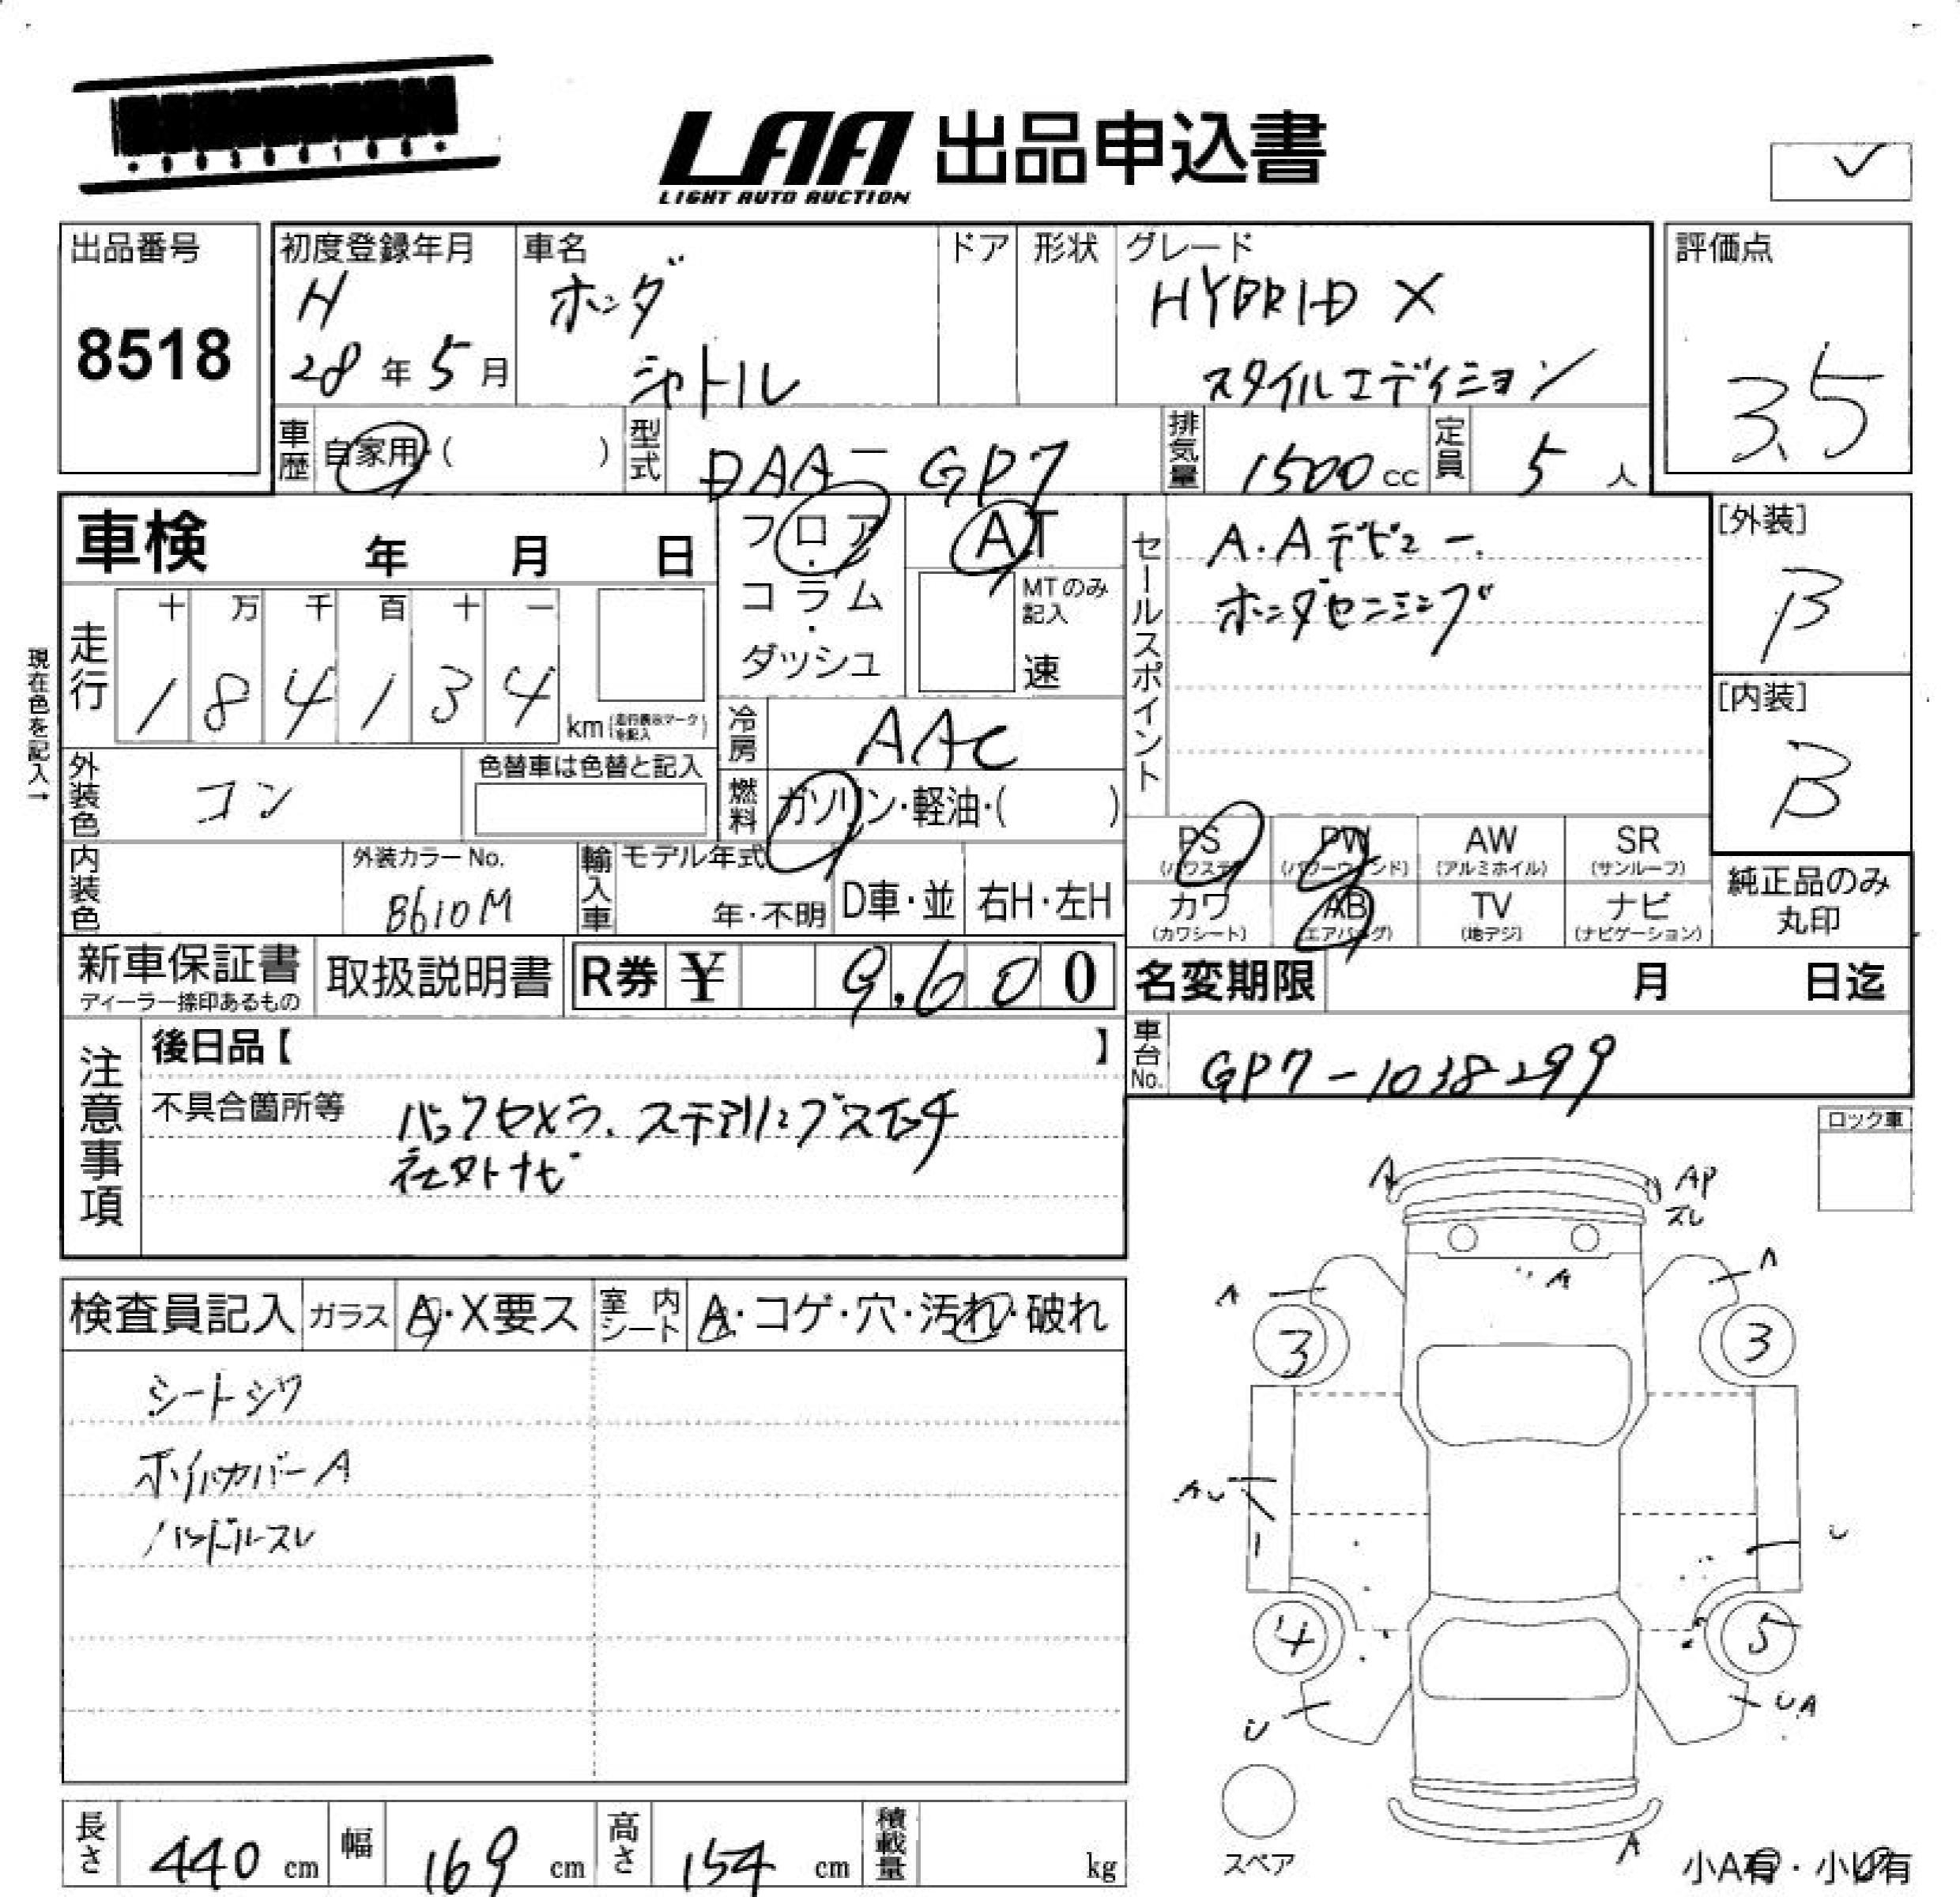 LAA 出品申込書
LIGHT AUTO AUCTION
出品番号
8518
初度登録年月
H
28年5月
車名
ホンダ
シャトル
ドア
形状
グレード
HYBRID X
スタイルエディション
評価点
3.5
車歴
自家用・( )
型式
DAA-GP7
排気量
1500cc
定員
5人
車検 年 月 日
フロア
・
コラム
・
ダッシュ
AT
MTのみ記入
速
セールスポイント
A.Aデビュー.
ホンダセンシング
[外装]
B
[内装]
B
現在色を記入→
走行
十 万 千 百 十 一
1 8 4 1 3 4
km(走行表示マークを記入)
冷房
AAC
燃料
ガソリン・軽油・( )
外装色
コン
色替車は色替と記入
内装色
外装カラーNo.
B610M
輸入車
モデル年式
年・不明
D車・並
右H・左H
PS
(パワステ)
PW
(パワーウィンド)
AW
(アルミホイル)
SR
(サンルーフ)
カワ
(カワシート)
AB
(エアバッグ)
TV
(地デジ)
ナビ
(ナビゲーション)
純正品のみ
丸印
新車保証書
ディーラー捺印あるもの
取扱説明書
R券 ¥ 9,600
名変期限 月 日迄
車台No.
GP7-1038299
注意事項
後日品【 】
不具合箇所等
バックカメラ、ステアリングスイッチ
社外ナビ
ロック車
検査員記入
ガラス
A・X要ス
室内シート
A・コゲ・穴・汚れ・破れ
シートシワ
ハンドルスレ
A
AP
スレ
A
A
A
3
3
AU
U
4
5
U
UA
A
スペア
小A有・小U有
長さ
440cm
幅
169cm
高さ
154cm
積載量
kg